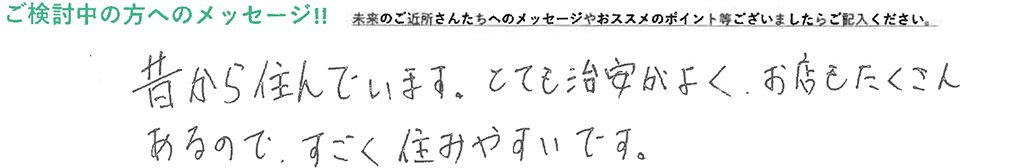 ご検討中の方へのメッセージ!! 未来のご近所さんたちへのメッセージやおススメのポイント等ございましたらご記入ください。
昔から住んでいます。とても治安がよく、お店もたくさん
あるので、すごく住みやすいです。